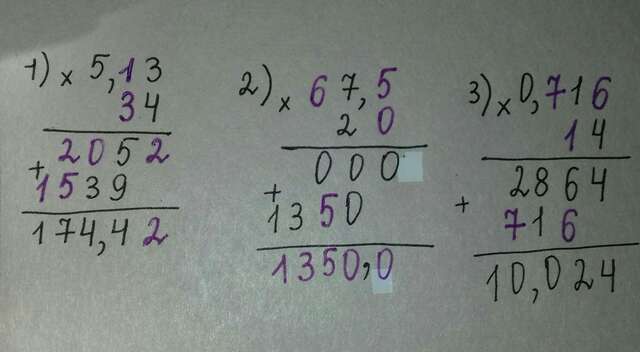 1) × 5,13
34
2052
+
1539
174,42
2) × 67,5
20
000
+
1350
1350,0
3) × 0,716
14
2864
+
716
10,024